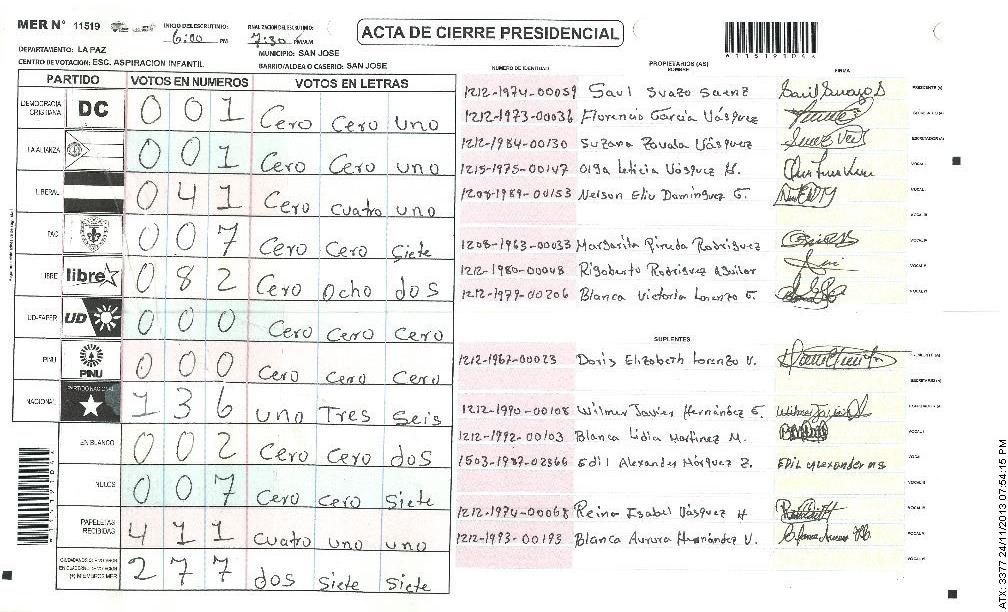 MER N° 11519
INICIO DEL ESCRUTINIO: 6:00 PM
FINALIZACION DEL ESCRUTINIO: 7:30 PM/AM
ACTA DE CIERRE PRESIDENCIAL
DEPARTAMENTO: LA PAZ
MUNICIPIO: SAN JOSE
CENTRO DE VOTACION: ESC. ASPIRACION INFANTIL
BARRIO/ALDEA O CASERIO: SAN JOSE
PARTIDO VOTOS EN NUMEROS VOTOS EN LETRAS
DEMOCRACIA CRISTIANA DC 0 0 1 Cero Cero uno
LA ALIANZA 0 0 1 Cero Cero uno
LIBERAL 0 4 1 Cero cuatro uno
PAC 0 0 7 Cero Cero siete
LIBRE libre 0 8 2 Cero ocho dos
UD-FAPER UD 0 0 0 Cero Cero Cero
PINU PINU 0 0 0 Cero Cero Cero
NACIONAL PARTIDO NACIONAL 1 3 6 uno Tres Seis
EN BLANCO 0 0 2 Cero Cero dos
NULOS 0 0 7 Cero Cero siete
PAPELETAS RECIBIDAS 4 1 1 cuatro uno uno
(+) MIEMBROS MER 2 7 7 dos siete siete
NUMERO DE IDENTIDAD PROPIETARIOS (AS) NOMBRE FIRMA
1212-1974-00059 Saul Suazo Saenz PRESIDENTE (A)
1212-1973-00036 Florencio Garcia Vásquez SECRETARIO (A)
1212-1984-00130 Suzana Zavala Vásquez ESCRUTADOR (A)
1215-1975-00147 Olga Leticia Vásquez M. VOCAL I
1208-1989-00153 Nelson Eliu Domínguez G. VOCAL II
VOCAL III
1208-1963-00033 Margarita Pineda Rodriguez VOCAL IV
1212-1980-00048 Rigoberto Rodriguez Aguilar VOCAL V
1212-1979-00206 Blanca Victoria Lorenzo G. VOCAL VI
SUPLENTES
1212-1967-00023 Doris Elizabeth Lorenzo V. PRESIDENTE (A)
SECRETARIO (A)
1212-1990-00108 Wilmer Javier Hernández G. ESCRUTADOR (A)
1212-1992-00103 Blanca Lidia Martinez M. VOCAL I
1503-1987-02366 Edil Alexander Márquez Z. VOCAL II
VOCAL III
1212-1974-00068 Reina Isabel Vásquez H VOCAL IV
1212-1993-00193 Blanca Aurora Hernández V. VOCAL V
VOCAL VI
ATX: 3377 24/11/2013 07:54:15 PM